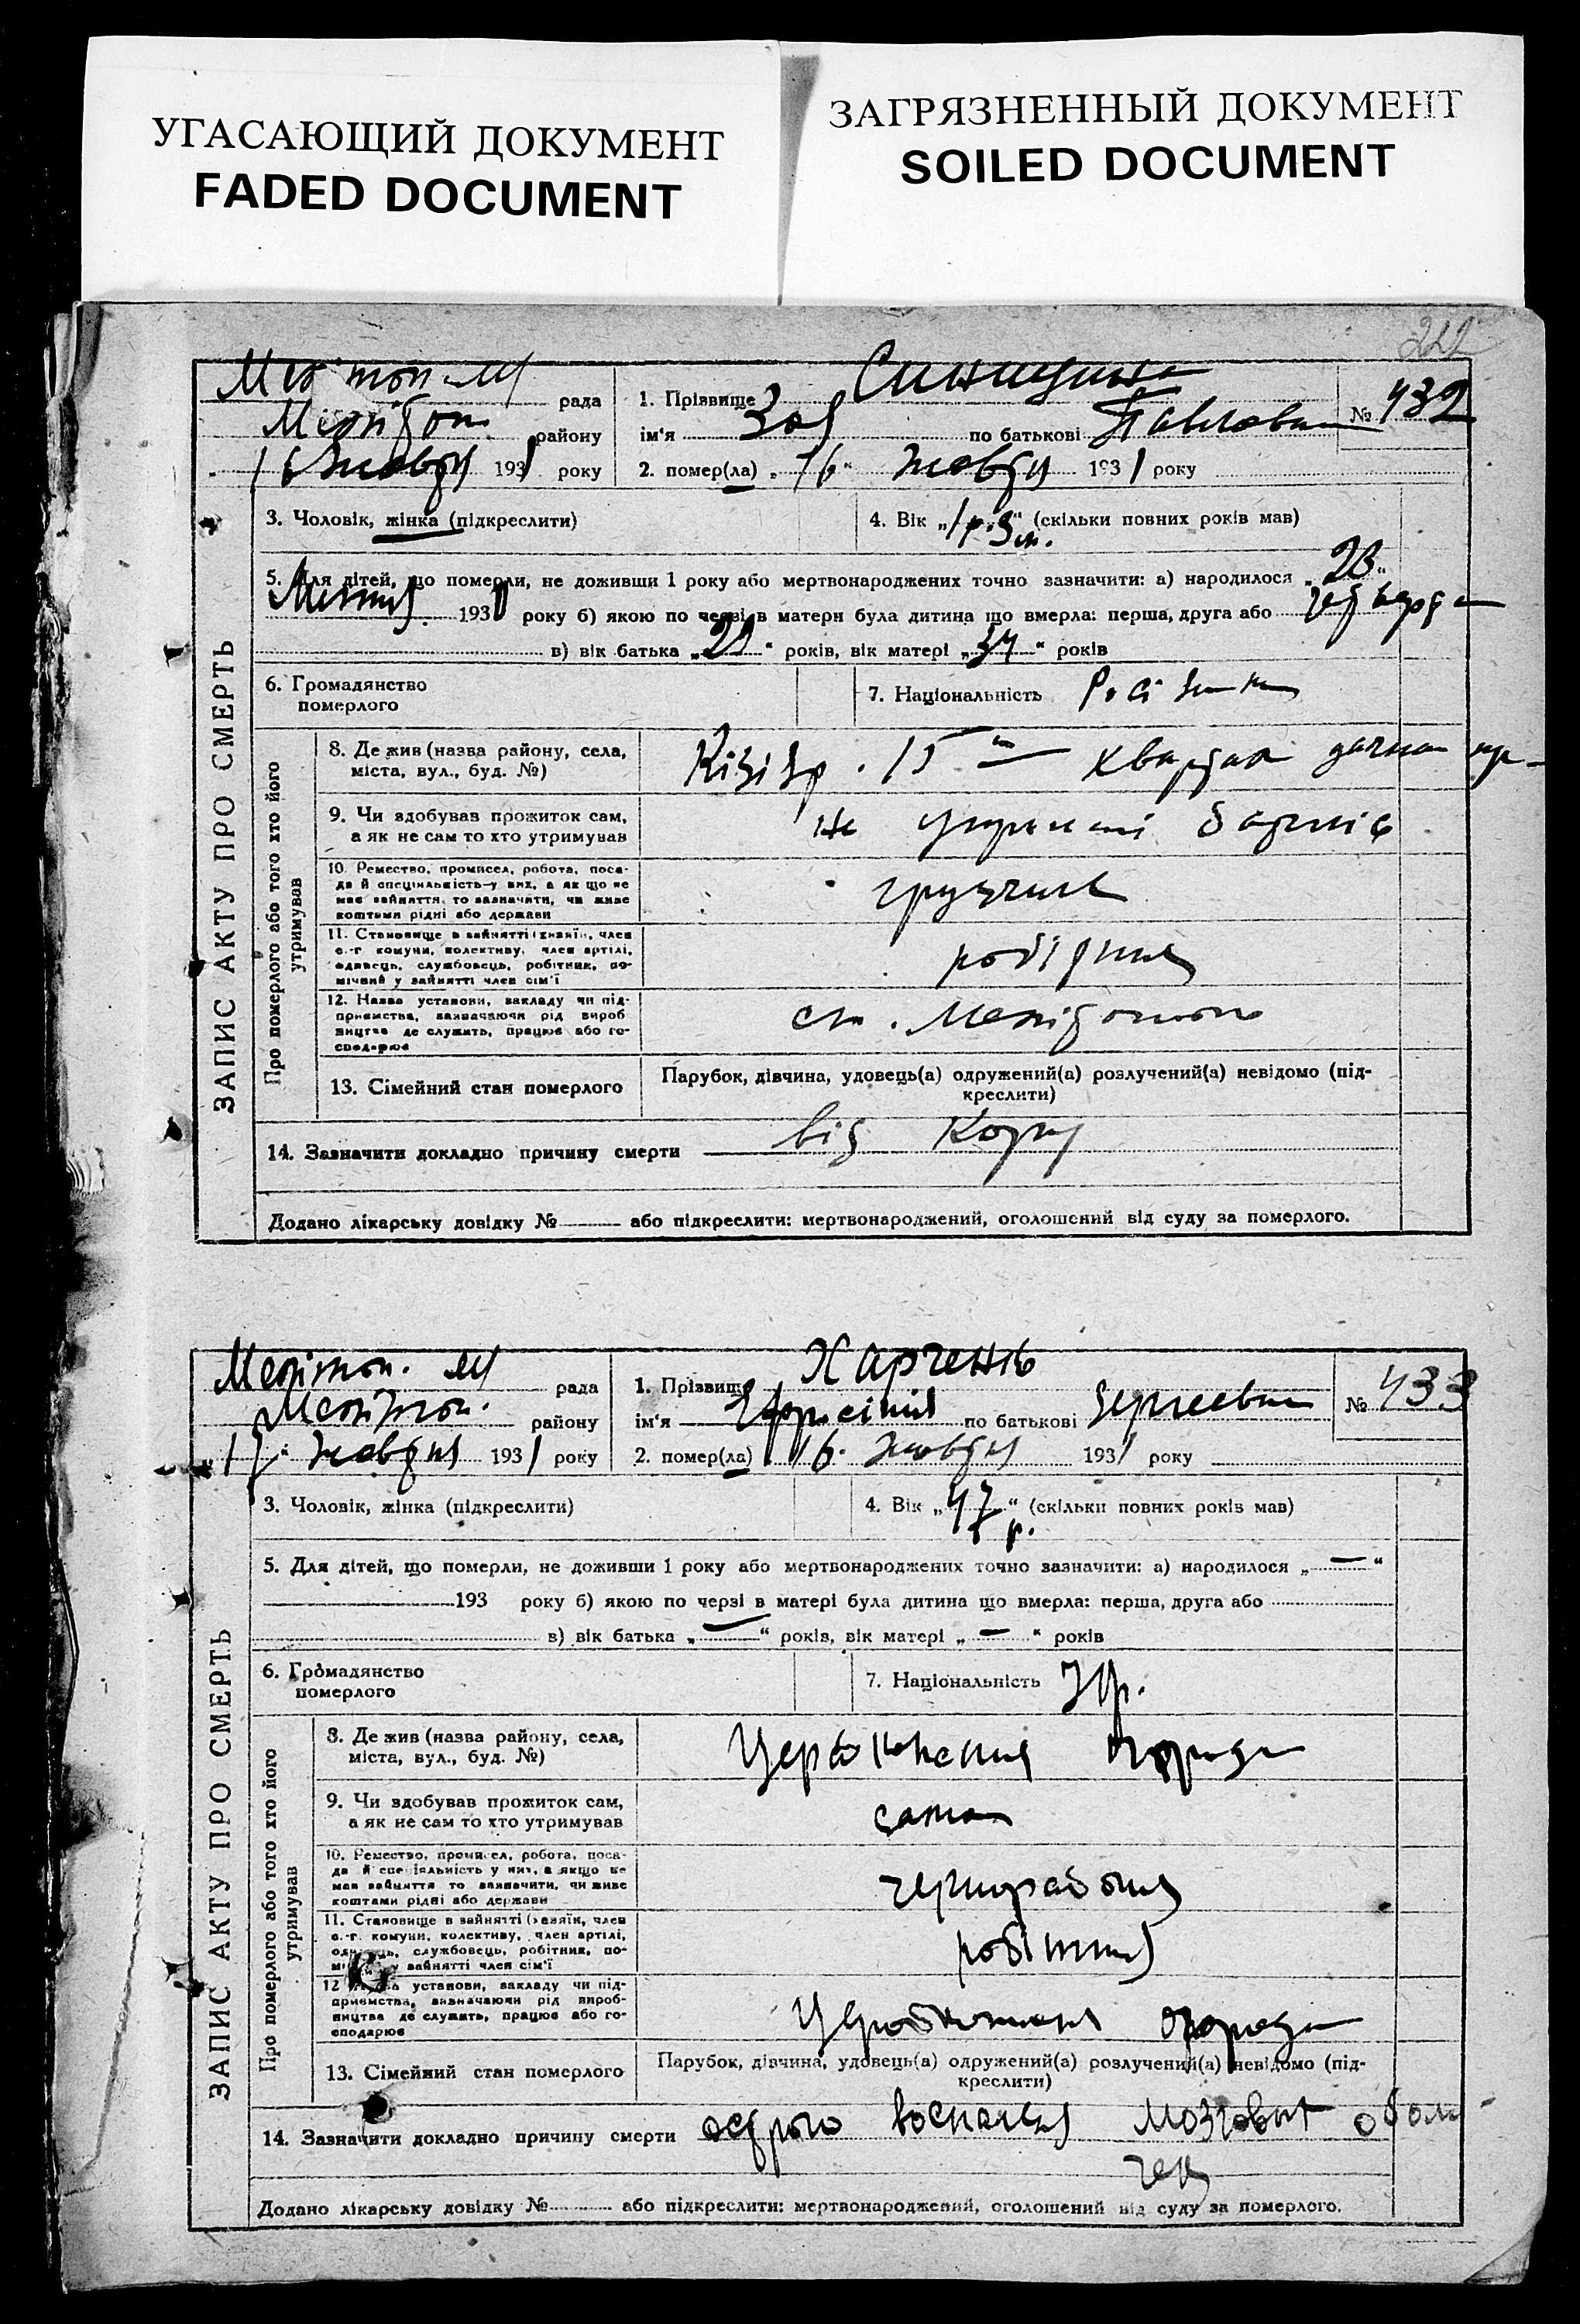 УГАСАЮЩИЙ ДОКУМЕНТ
FADED DOCUMENT
ЗАГРЯЗНЕННЫЙ ДОКУМЕНТ
SOILED DOCUMENT
222
ЗАПИС АКТУ ПРО СМЕРТЬ
рада
району
16 жовтня 1931 року
1. Прізвище
№ 432
ім'я Зоя по батькові Павловна
2. помер(ла) „16" жовтня 1931 року
3. Чоловік, жінка (підкреслити)
4. Вік „1 р. 3 м." (скільки повних років мав)
5. Для дітей, що померли, не доживши 1 року або мертвонароджених точно зазначити: а) народилося „23"
193 року б) якою по черзі в матери була дитина що вмерла: перша, друга або четверта
в) вік батька „29" років, вік матері „34" років
6. Громадянство
померлого
7. Національність
Про померлого або того хто його
утримував
8. Де жив (назва району, села,
міста, вул., буд. №)
9. Чи здобував прожиток сам,
а як не сам то хто утримував
на утриманні батьків
10. Ремество, промисел, робота, поса-
да й спеціяльність у них, а як що не
має зайняття то зазначити, чи живе
коштами рідні або держави
грузчик
11. Становище в зайнятті (хазяїн, член
с.-г. комуни, колективу, член артілі,
одинець, службовець, робітник, по-
мічний у зайнятті член сім'ї
робітник
12. Назва установи, закладу чи під-
приємства, зазначаючи рід вироб-
ництва де служить, працює або го-
сподарює
ст. Мелітополь
13. Сімейний стан померлого
Парубок, дівчина, удовець(а) одружений(а) розлучений(а) невідомо (під-
креслити)
14. Зазначити докладно причину смерти від Кору
Додано лікарську довідку № або підкреслити: мертвонароджений, оголошений від суду за померлого.
ЗАПИС АКТУ ПРО СМЕРТЬ
Мелітоп. рада
Мелітоп. району
17 жовтня 1931 року
1. Прізвище Харченко
№ 433
ім'я по батькові Сергеевна
2. помер(ла) 16 жовтня 1931 року
3. Чоловік, жінка (підкреслити)
4. Вік „47 р." (скільки повних років мав)
5. Для дітей, що померли, не доживши 1 року або мертвонароджених точно зазначити: а) народилося „—"
193 року б) якою по черзі в матері була дитина що вмерла: перша, друга або
в) вік батька „—" років, вік матері „—" років
6. Громадянство
померлого
7. Національність Укр.
Про померлого або того хто його
утримував
8. Де жив (назва району, села,
міста, вул., буд. №)
9. Чи здобував прожиток сам,
а як не сам то хто утримував
сама
10. Ремество, промисел, робота, поса-
да й спеціяльність у них, а якщо не
має зайняття то зазначити, чи живе
коштами рідні або держави
11. Становище в зайнятті (хазяїн, член
с.-г. комуни, колективу, член артілі,
одинець, службовець, робітник, по-
мічний у зайнятті член сім'ї
12. Назва установи, закладу чи під-
приємства, зазначаючи рід вироб-
ництва де служить, працює або го-
сподарює
13. Сімейний стан померлого
Парубок, дівчина, удовець(а) одружений(а) розлучений(а) невідомо (під-
креслити)
14. Зазначити докладно причину смерти мозговых оболо
чек
Додано лікарську довідку № або підкреслити: мертвонароджений, оголошений від суду за померлого.